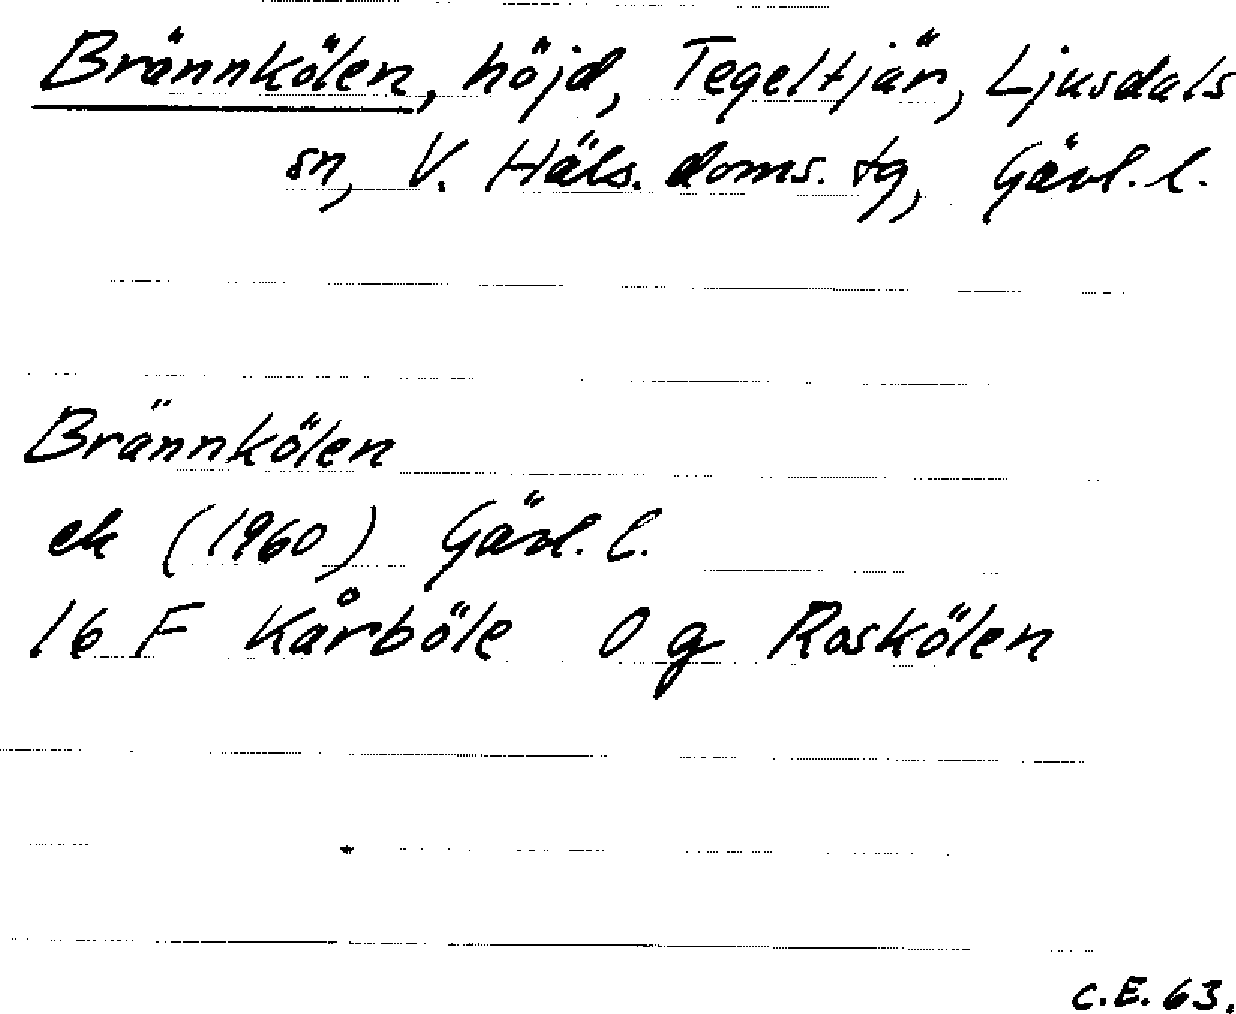 Brännkölen, höjd, Tegeltjär, Ljusdals
sn, V. Häls. doms. tg, Gävl. l.
Brännkölen
ek (1960) Gävl. l.
16 F Kårböle 0 g Roskölen
C.E. 63.